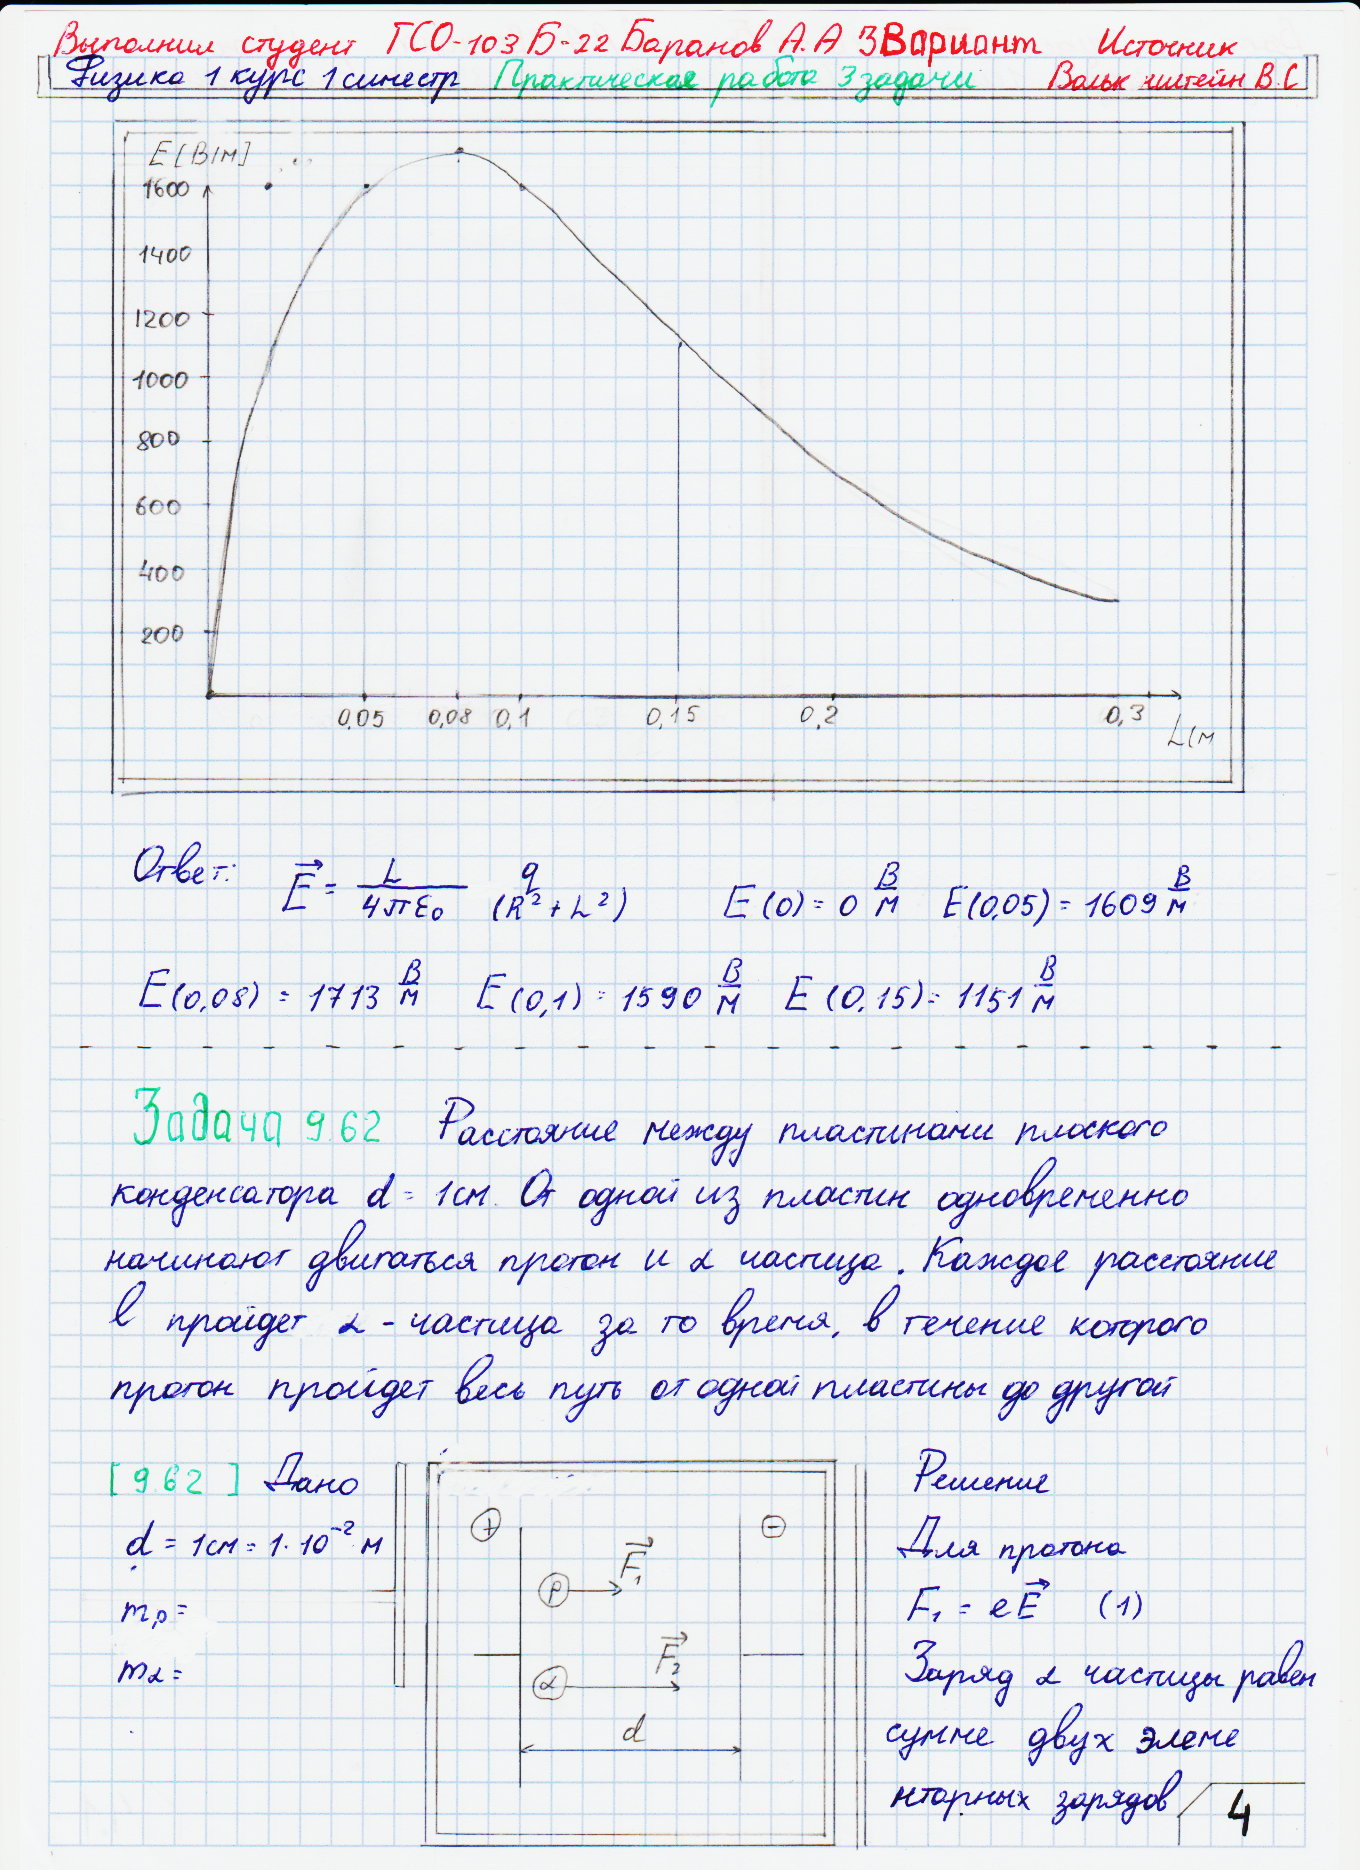 Выполнил студент ТСО-103Б-22 Баранов А.А 3Вариант Источник
Физика 1 курс 1 синестр Практическая работа 3 задачи Волькнштейн В.С
E[В/м]
1600
1400
1200
1000
800
600
400
200
0,05 0,08 0,1 0,15 0,2 0,3
L(м
Ответ: E⃗ = L/4πε₀ q/(R²+L²) E(0)=0 В/м E(0,05)=1609 В/м
E(0,08)=1713 В/м E(0,1)=1590 В/м E(0,15)=1151 В/м
Задача 9.62 Расстояние между пластинами плоского
конденсатора d=1см. От одной из пластин одновременно
начинают двигаться протон и α частица. Каждое расстояние
l пройдет α-частица за то время, в течение которого
протон пройдет весь путь от одной пластины до другой
[9.62] Дано
d=1см=1·10⁻² м
mₚ=
mα=
+ −
p F⃗₁
α F⃗₂
d
Решение
Для протона
F₁=eE⃗ (1)
Заряд α частицы равен
сумме двух элеме
нтарных зарядов
4